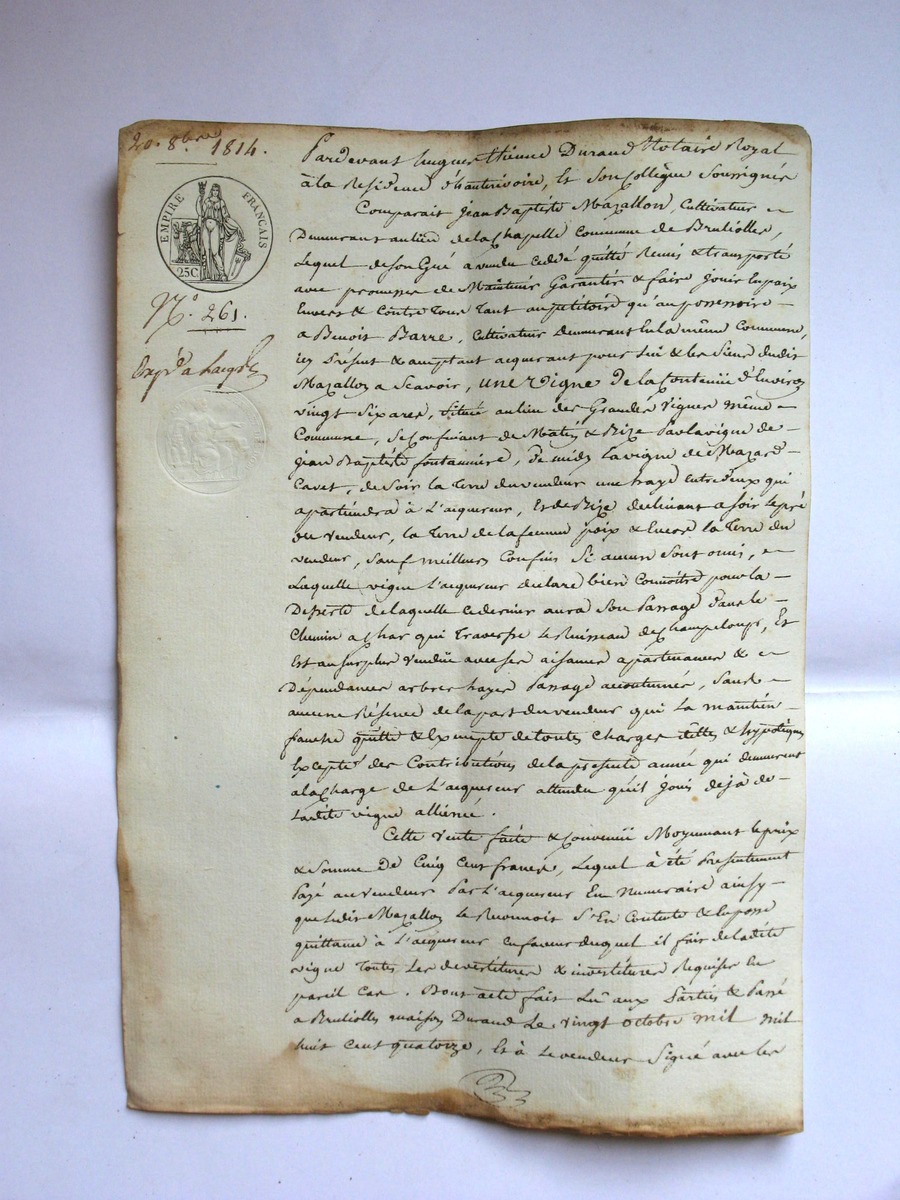 20. 8bre 1814.
EMPIRE FRANÇAIS
25C
No. 261.
Expédn a Lacqr
Pardevant hugues Etienne Durand Notaire Royal
à la Residence d'hauterivoire, Et son Collègue Soussignés
Comparait Jean Baptiste Mazallon, Cultivateur
Demeurant au lieu de la Chapelle Commune de Brullolles,
Lequel de son Gré a vendu Ceddé quitté Remis & transporté
avec promesse de Maintenir Garantir & faire jouir En paix
Envers & Contre Tous Tant au petitoire qu'au possessoire
a Benoit Barre, Cultivateur demeurant En la même Commune,
icy Présent & acceptant acquerant pour Lui & les Siens dudit
Mazallon a Scavoir, une vigne de la Contenüe d'Environ
vingt Six ares, Située au lieu des Grandes Vignes même
Commune, Se Confinant de Matin & Bize Par la vigne de
jean Baptiste fontanniere, de midy la vigne de Mazard
Cavet, de Soir la Terre du vendeur une haye entre deux qui
apartiendra à L'aquereur, Et de Bize declinant a soir le pré
du vendeur, la Terre de la femme poix & Encor la Terre du
vendeur, Sauf meilleurs Confins Si aucuns Sont omis,
Laquelle vigne L'acquereur declare bien Connoître pour la
Desserte de laquelle ce dernier aura Son Passage dans le
Chemin a Char qui Traverse le Ruisseau de Champeloup, Et
Est au surplus Vendüe avec ses aisances apartenances &
Dépendances arbres hayes Passage accoutumés, Sans
aucune Réserve de la part du vendeur qui La maintien
franche quitte & Exempte de toutes Charges dettes & hypoteques
Excepté des Contributions de la présente année qui demeurent
a la Charge de L'acquereur attendu qu'il jouit déjà de
Ladite vigne alliénée.
Cette Vente faite & Convenüe Moyennant le prix
& Somme de Cinq Cent francs, Lequel à été Presentement
Payé au Vendeur Par L'acquereur En Numeraire ainsy
que Ledit Mazallon Le Reconnoit S'En Contente & En passe
quittance à L'acquereur En faveur duquel il fait de ladite
vigne Toutes Les devestitures & investitures Requises En
pareil Cas. Dont acte fait Lû aux Parties & Passé
a Brullolles maison Durand Le vingt octobre mil
huit Cent quatorze, Et à Le vendeur Signé avec les